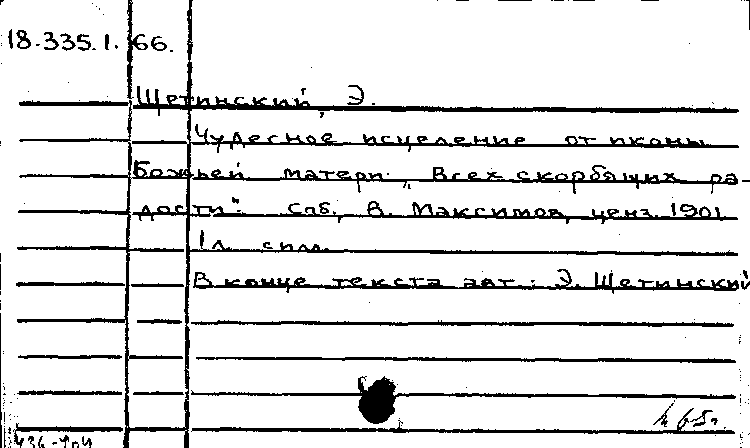 18.335.1.66.
Щетинский, Э.
Чудесное исцеление от иконы
Божьей матери „Всех скорбящих ра-
дости". Спб., В. Максимов, ценз. 1901
1 л. с илл.
В конце текста авт.: Э. Щетинский